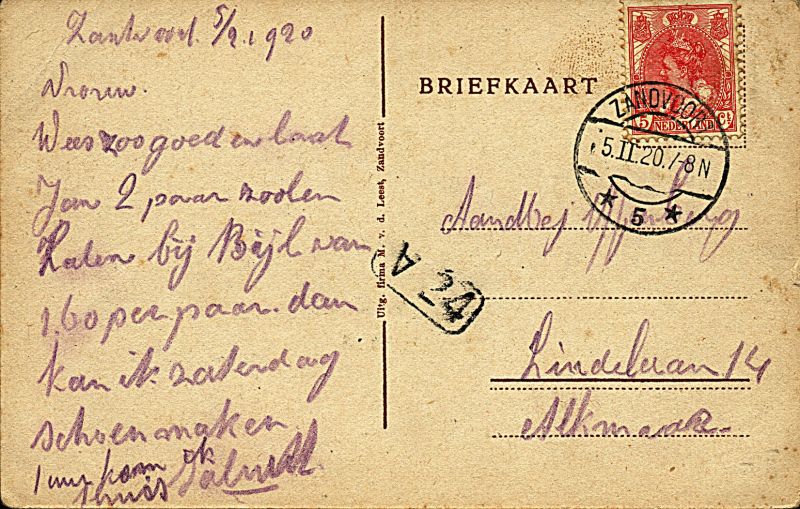 Zantvoort 5/2. 1920
Vrouw.
Wees zoo goed en laat
Jan 2 paar zoolen
halen bij Bijl van
1.60 per paar. dan
kan ik zaterdag
schoenmaken
1 uur kom ik
thuis
Uitg. firma M. v. d. Leest, Zandvoort
BRIEFKAART
5 NEDERLAND Ct
ZANDVOORT
5.II.20.7-8N
* 5 *
A-24
Lindelaan 14
Alkmaar